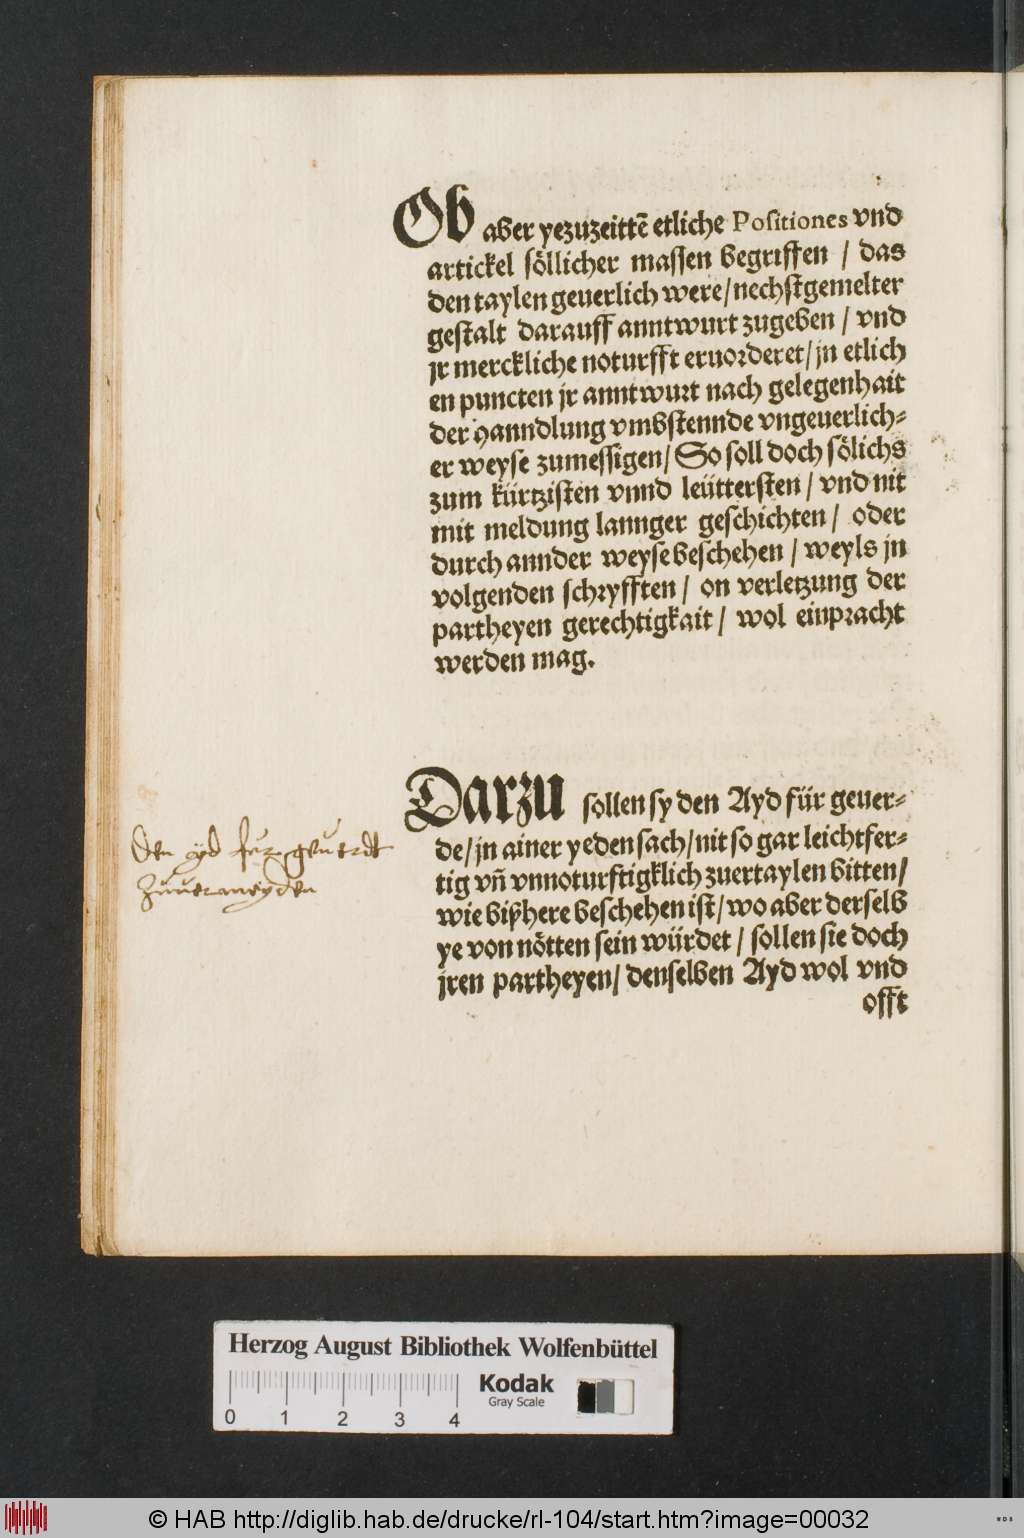 Ob aber yezuzeittē etliche Positiones vnd
artickel söllicher massen begriffen / das
den taylen geuerlich were / nechstgemelter
gestalt darauff anntwurt zugeben / vnd
jr merckliche noturfft eruorderet / jn etlich
en puncten jr anntwurt nach gelegenhait
der hanndlung vmbstennde vngeuerlich⸗
er weyse zumessigen / So soll doch sölichs
zum kürtzisten vnnd leüttersten / vnd nit
mit meldung lannger geschichten / oder
durch annder weyse beschehen / weyls jn
volgenden schryfften / on verletzung der
partheyen gerechtigkait / wol einpracht
werden mag.
Darzu sollen sy den Ayd für geuer⸗
de / jn ainer yeden sach / nit so gar leichtfer⸗
tig vñ vnnoturftigklich zuertaylen bitten /
wie bißhere beschehen ist / wo aber derselb
ye von nötten sein würdet / sollen sie doch
jren partheyen / denselben Ayd wol vnd
offt
den ayd fur geuerdt
Herzog August Bibliothek Wolfenbüttel
Kodak
Gray Scale
0 1 2 3 4
© HAB http://diglib.hab.de/drucke/rl-104/start.htm?image=00032